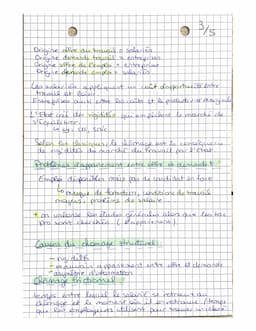 3/5
Origine offre du travail = salariés
Origine demande travail = entreprises
Origine offre de l'emploi = entreprise
Origine demande emploi = salariés
Les salariés appliquent un coût d'opportunité entre
travail et loisir.
Entreprises aussi entre les coûts et la productivité marginale
L'Etat crée des rigidités qui empêchent le marché de
s'équilibrer.
eg: CDI, SMIC
Selon les classiques, le chômage est la conséquence
de rigidités du marché du travail par l'état
Problèmes d'appariement entre offre et demande :
Emploi disponible mais pas de candidat en face
manque de formation, conditions de travail
moyens, problème de salaire
on valorise les études générales alors que les bac
pro sont cherchés (appariement)
Causes du chômage structurel :
- rigidités
- mauvais appariement entre offre et demande
- asymétrie d'information
Chômage frictionnel :
temps entre lequel le salarié se retrouve au
chômage et le moment où il en retrouve / temps
que les employeurs utilisent pour trouver un